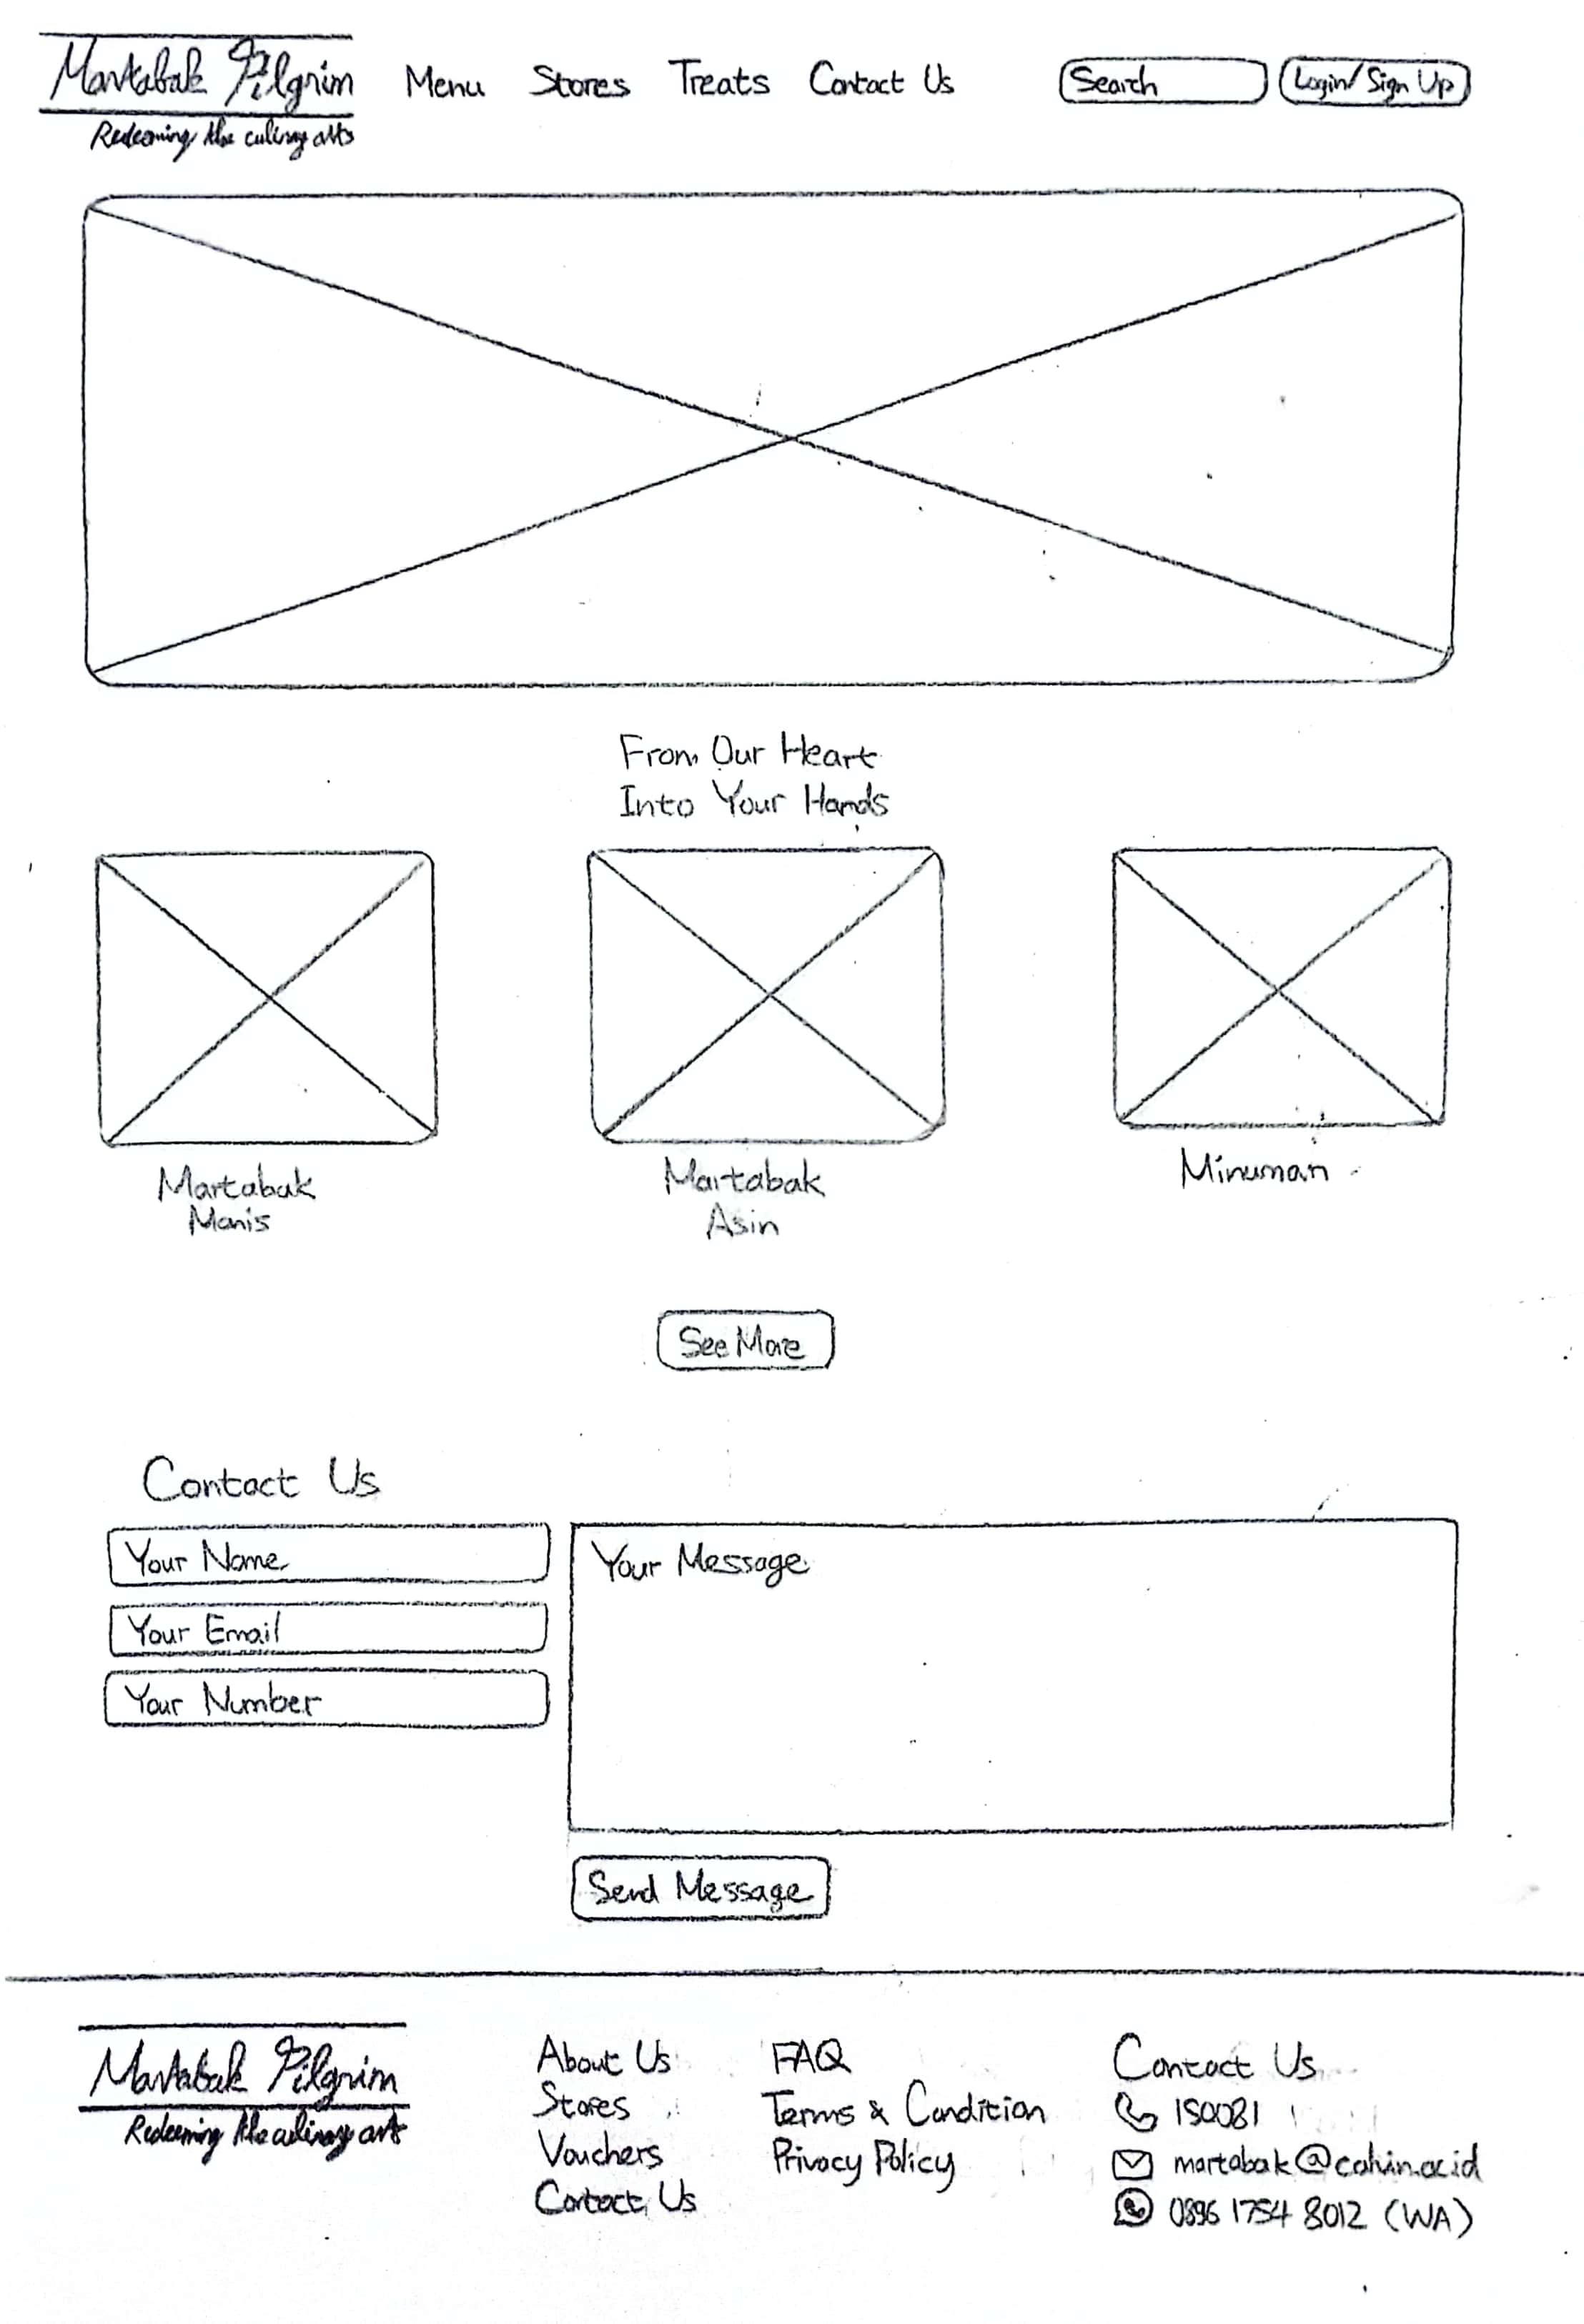 Martabak Pilgrim
Redeeming the culinary arts
Menu Stores Treats Contact Us
Search
Login/Sign Up
From Our Heart
Into Your Hands
Martabak
Manis
Martabak
Asin
Minuman
See More
Contact Us
Your Name
Your Email
Your Number
Your Message
Send Message
Martabak Pilgrim
Redeeming the culinary arts
About Us
Stores
Vouchers
Contact Us
FAQ
Terms & Condition
Privacy Policy
Contact Us
150081
martabak@calvin.ac.id
0896 1754 8012 (WA)